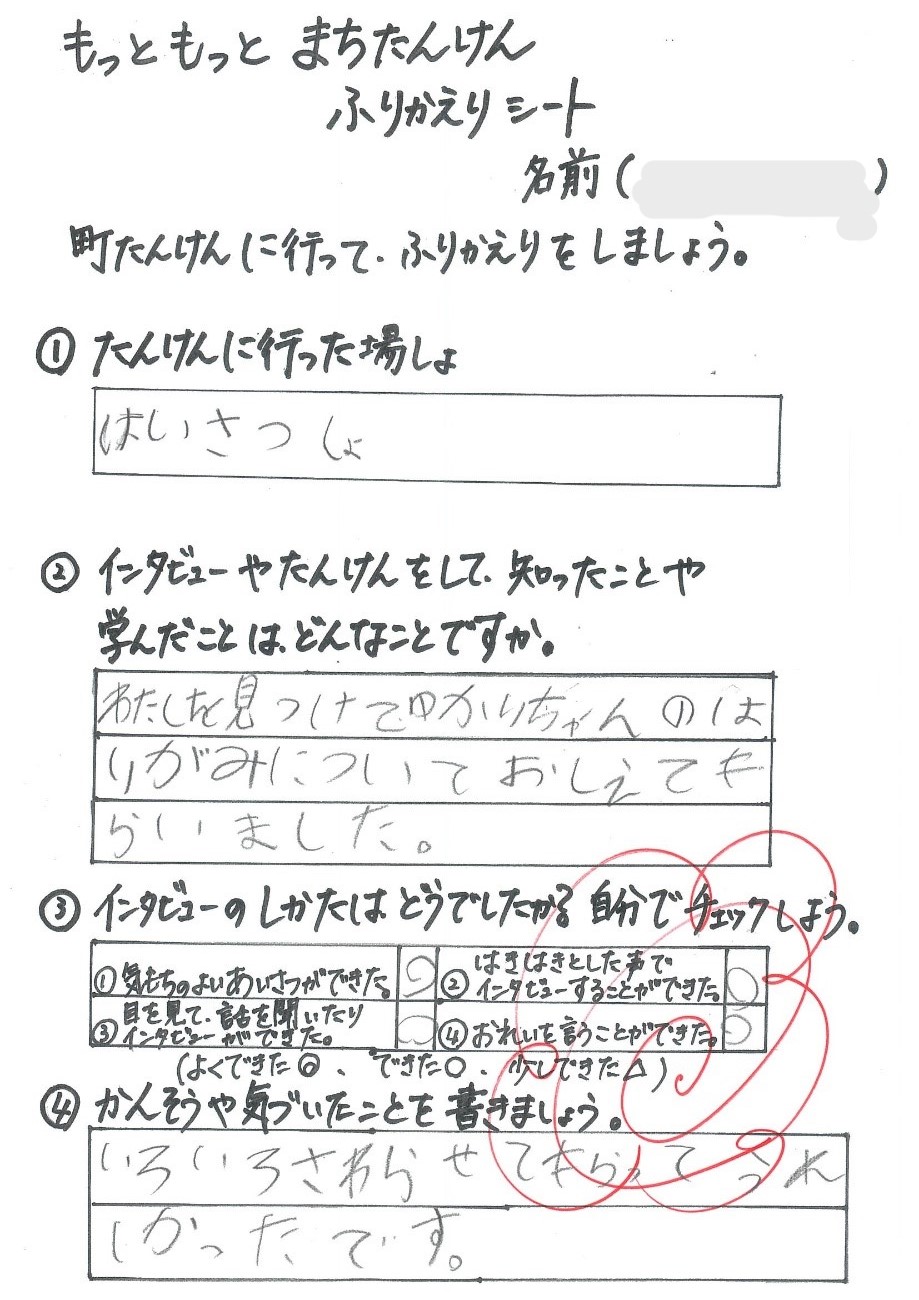 もっともっと まちたんけん
ふりかえりシート
名前( )
町たんけんに行って、ふりかえりをしましょう。
① たんけんに行った場しょ
はいさつしょ
② インタビューやたんけんをして、知ったことや
学んだことは、どんなことですか。
わたしを見つけてゆかりちゃんのは
りがみについておしえても
らいました。
③ インタビューのしかたはどうでしたか。自分でチェックしよう。
① 気もちのよいあいさつができた。 ◎
② はきはきとした声で
インタビューすることができた。 ○
③ 目を見て、話を聞いたり
インタビューができた。 ○
④ おれいを言うことができた。 ◎
(よくできた◎、できた○、少しできた△)
④ かんそうや気づいたことを書きましょう。
いろいろさわらせてもらってうれ
しかったです。